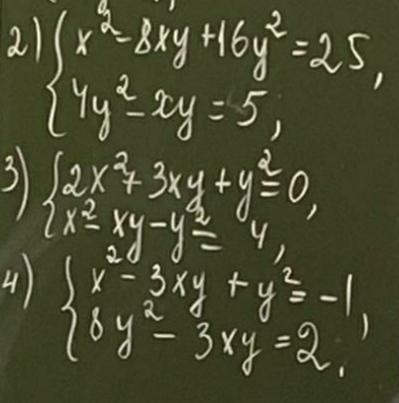 2) { x² - 8xy + 16y² = 25,
4y² - xy = 5,
3) { 2x² + 3xy + y² = 0,
x² - xy - y² = 4,
4) { x² - 3xy + y² = -1,
8y² - 3xy = 2.